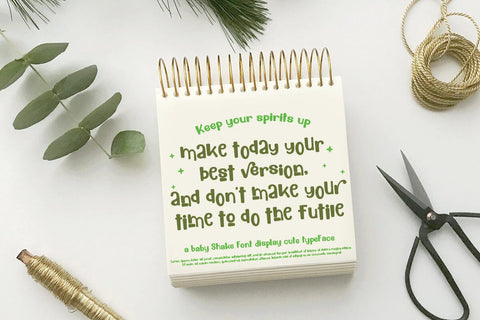 Keep your spirits up
make today your
best version,
and don't make your
time to do the futile
a baby Shake font display cute typeface